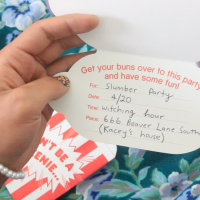 Get your buns over to this party
and have some fun!
For: Slumber Party
Date: 4/20
Time: Witching hour
Place: 666 Beaver Lane South
(Kacey's house)
N'T BE A
ENIE...